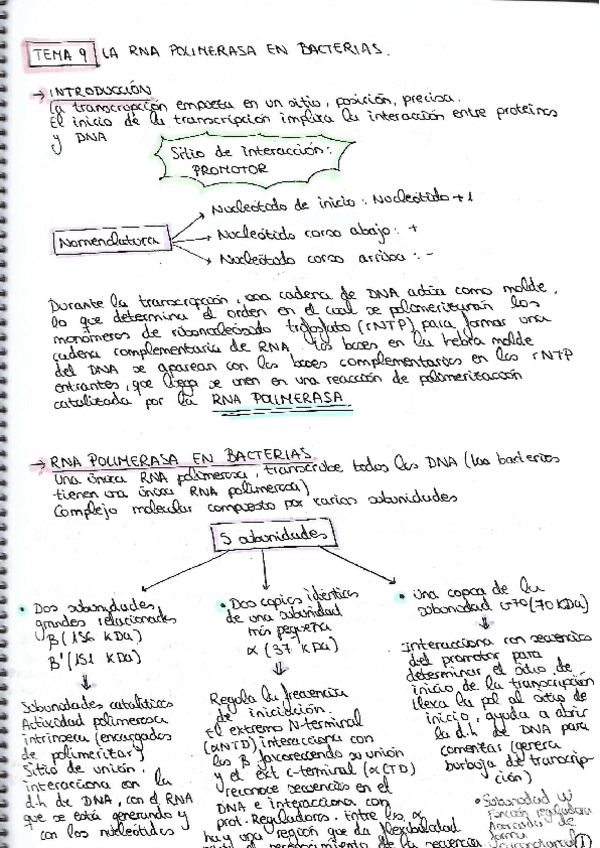 TEMA 9 LA RNA POLIMERASA EN BACTERIAS.
→ INTRODUCCIÓN
La transcripción empieza en un sitio, posición, precisa.
El inicio de la transcripción implica la interacción entre proteínas
y DNA
Sitio de interacción:
PROMOTOR
Nomenclatura
Nucleótido de inicio: Nucleótido +1
Nucleótido corso abajo: +
Nucleótido corso arriba: -
Durante la transcripción, una cadena de DNA actúa como molde,
lo que determina el orden en el cual se polimerizarán los
monómeros de ribonucleósido trifosfato (rNTP) para formar una
cadena complementaria de RNA. Las bases en la hebra molde
del DNA se aparean con las bases complementarias en los rNTP
entrantes, que luego se unen en una reacción de polimerización
catalizada por la RNA POLIMERASA
→ RNA POLIMERASA EN BACTERIAS
Una única RNA polimerasa, transcribe todos los DNA (las bacterias
tienen una única RNA polimerasa)
Complejo molecular compuesto por varias subunidades
5 subunidades
• Dos subunidades
grandes relacionadas
β (156 KDa)
β' (151 KDa)
Subunidades catalíticas
Actividad polimerasa
intrínseca (encargados
de polimerizar)
Sitio de unión,
interacciona con la
d.h de DNA, con el RNA
que se está generando y
con los nucleótidos
• Dos copias idénticas
de una subunidad
más pequeña
α (37 KDa)
Regula la frecuencia
de iniciación.
El extremo N-terminal
(αNTD) interacciona con
las β favoreciendo su unión
y el ext c-terminal (αCTD)
reconoce secuencias en el
DNA e interacciona con
prot. Reguladoras. Entre los α
hay una región que da flexibilidad
reconocimiento de la secuencia
• una copia de la
subunidad σ70 (70 KDa)
Interacciona con secuencias
del promotor para
determinar el sitio de
inicio de la transcripción
lleva la pol al sitio de
inicio, ayuda a abrir
la d.h de DNA para
comenzar (genera
burbuja de transcrip-
ción)
• Subunidad ω
Función reguladora
forma
①